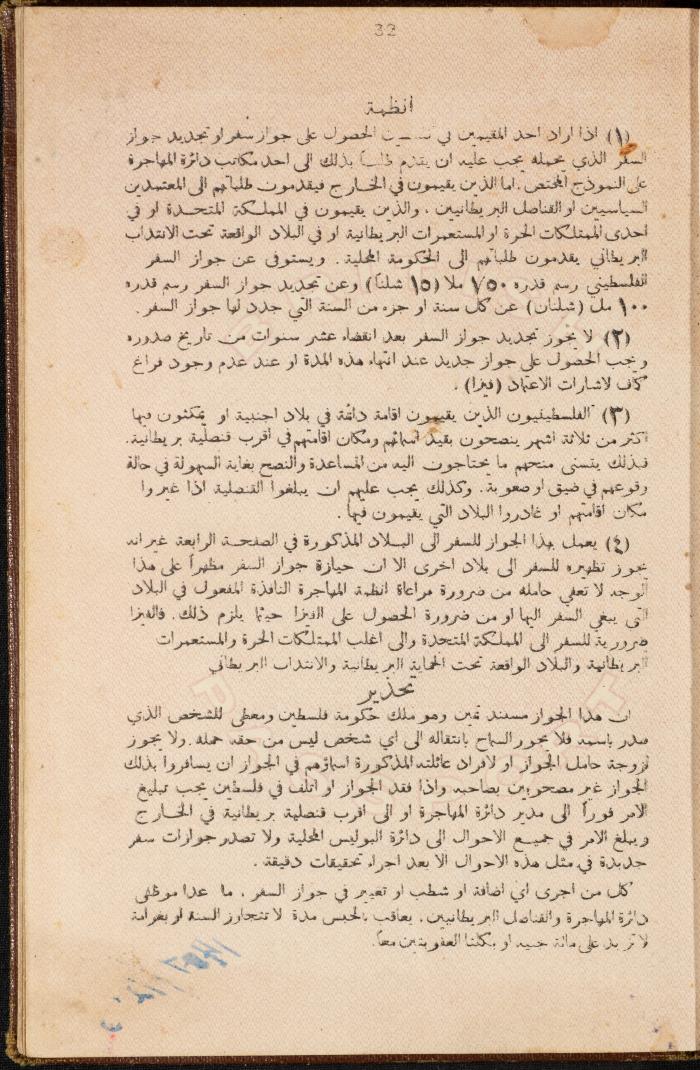 32
انظمة
(١) اذا اراد احد المقيمين في فلسطين الحصول على جواز سفر او تجديد جواز
السفر الذي يحمله يجب عليه ان يقدم طلباً بذلك الى احد مكاتب دائرة المهاجرة
على النموذج المختص. اما الذين يقيمون في الخارج فيقدمون طلباتهم الى المعتمدين
السياسيين او القناصل البريطانيين. والذين يقيمون في المملكة المتحدة او في
احدى الممتلكات الحرة او المستعمرات البريطانية او في البلاد الواقعة تحت الانتداب
البريطاني يقدمون طلباتهم الى الحكومة المحلية. ويستوفى عن جواز السفر
الفلسطيني رسم قدره ٧٥٠ ملا (١٥ شلنا) وعن تجديد جواز السفر رسم قدره
١٠٠ مل (شلنان) عن كل سنة او جزء من السنة التي جدد لها جواز السفر.
(٢) لا يجوز تجديد جواز السفر بعد انقضاء عشر سنوات من تاريخ صدوره
ويجب الحصول على جواز جديد عند انتهاء هذه المدة او عند عدم وجود فراغ
كاف لاشارات الاعتماد (فيزا).
(٣) الفلسطينيون الذين يقيمون اقامة دائمة في بلاد اجنبية او يمكثون فيها
اكثر من ثلاثة اشهر ينصحون بقيد اسمائهم ومكان اقامتهم في اقرب قنصلية بريطانية.
فبذلك يتسنى منحهم ما يحتاجون اليه من المساعدة والنصح بغاية السهولة في حالة
وقوعهم في ضيق او صعوبة. وكذلك يجب عليهم ان يبلغوا القنصلية اذا غيروا
مكان اقامتهم او غادروا البلاد التي يقيمون فيها.
(٤) يعمل بهذا الجواز للسفر الى البلاد المذكورة في الصفحة الرابعة غير انه
يجوز تظهيره للسفر الى بلاد اخرى الا ان حيازة جواز السفر مظهراً على هذا
الوجه لا تعفي حامله من ضرورة مراعاة انظمة المهاجرة النافذة المفعول في البلاد
التي يبغي السفر اليها او من ضرورة الحصول على الفيزا حيثما يلزم ذلك. فالفيزا
ضرورية للسفر الى المملكة المتحدة والى اغلب الممتلكات الحرة والمستعمرات
البريطانية والبلاد الواقعة تحت الحماية البريطانية والانتداب البريطاني
تحذير
ان هذا الجواز مستند ثمين وهو ملك حكومة فلسطين ومعطى للشخص الذي
صدر باسمه فلا يجوز السماح بانتقاله الى اي شخص ليس من حقه حمله. ولا يجوز
لزوجة حامل الجواز او لافراد عائلته المذكورة اسماؤهم في الجواز ان يسافروا بذلك
الجواز غير مصحوبين بصاحبه واذا فقد الجواز او اتلف في فلسطين يجب تبليغ
الامر فوراً الى مدير دائرة المهاجرة او الى اقرب قنصلية بريطانية في الخارج
ويبلغ الامر في جميع الاحوال الى دائرة البوليس المحلية ولا تصدر جوازات سفر
جديدة في مثل هذه الاحوال الا بعد اجراء تحقيقات دقيقة.
كل من اجرى اي اضافة او شطب او تغيير في جواز السفر، ما عدا موظفي
دائرة المهاجرة والقناصل البريطانيين، يعاقب بالحبس مدة لا تتجاوز السنة او بغرامة
لا تزيد على مائة جنيه او بكلتا العقوبتين معاً.